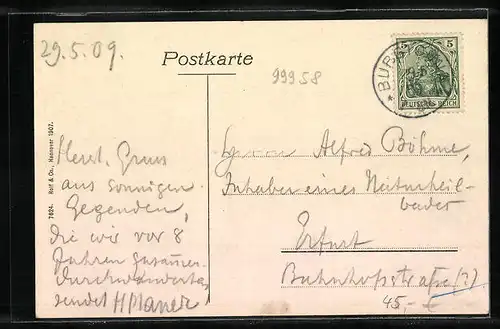 29.5.09.
Postkarte
99958
5
DEUTSCHES REICH
BURG
7824. Rolf & Co., Hannover 1907.
Herzl. Gruss
aus sonnigen
Gegenden,
die wir vor 8
Jahren zusammen
durchwandert
sendet
Herrn Alfred Böhme,
Inhaber eines Naturheil-
bades
Erfurt
Bahnhofstraße (?)
45,-